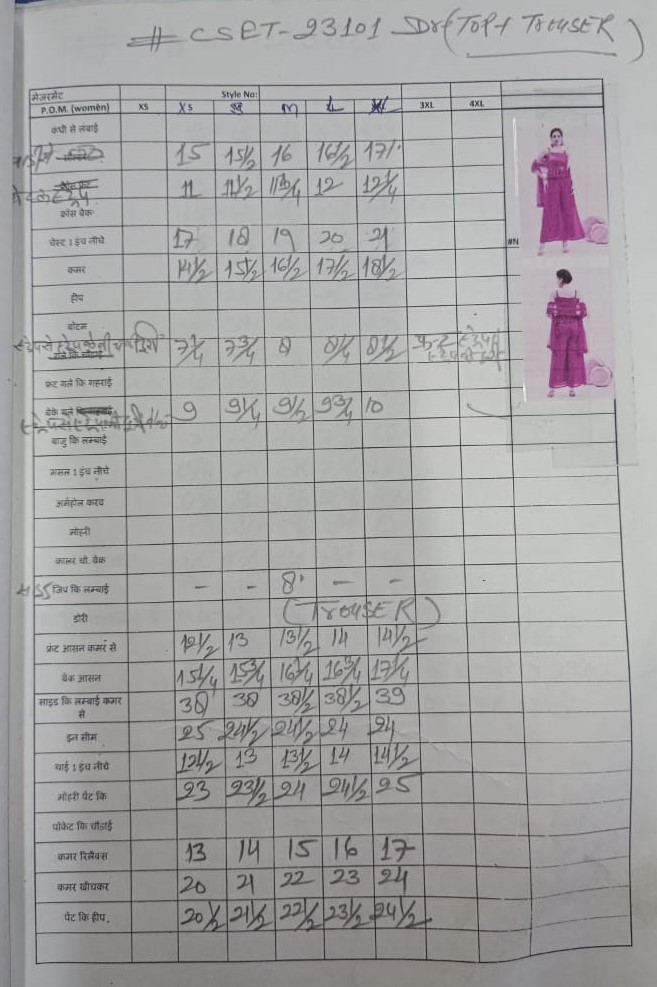 # CSET-23101 (TOP + TROUSER)
मेजरमेंट Style No:
P.O.M. (women) XS XS M L 3XL 4XL
कंधी से लंबाई
15 15½ 16 16½ 17½
11 11½ 11¾ 12 12¼
क्रॉस बेक
चेस्ट 1 इंच नीचे 17 18 19 20 21
#N
कमर 14½ 15½ 16½ 17½ 18½
हीप
बोटम
7¼ 7¾ 8 8¼ 8½
फ्रंट गले कि गहराई
बेक गले 9 9¼ 9½ 9¾ 10
बाजु कि लम्बाई
मसल 1 इंच नीचे
अर्महोल करव
मोहरी
कालर चौ. बेक
जिप कि लम्बाई - - 8" - -
डोरी (TROUSER)
फ्रंट आसन कमर से 12½ 13 13½ 14 14½
बेक आसन 15¼ 15¾ 16¼ 16¾ 17¼
साइड कि लम्बाई कमर से 38 38 38½ 38½ 39
इन सीम 25 24½ 24½ 24 24
थाई 1 इंच नीचे 12½ 13 13½ 14 14½
मोहरी पेंट कि 23 23½ 24 24½ 25
पोकेट कि चौड़ाई
कमर रिलैक्स 13 14 15 16 17
कमर खीचकर 20 21 22 23 24
पेंट कि हीप, 20½ 21½ 22½ 23½ 24½